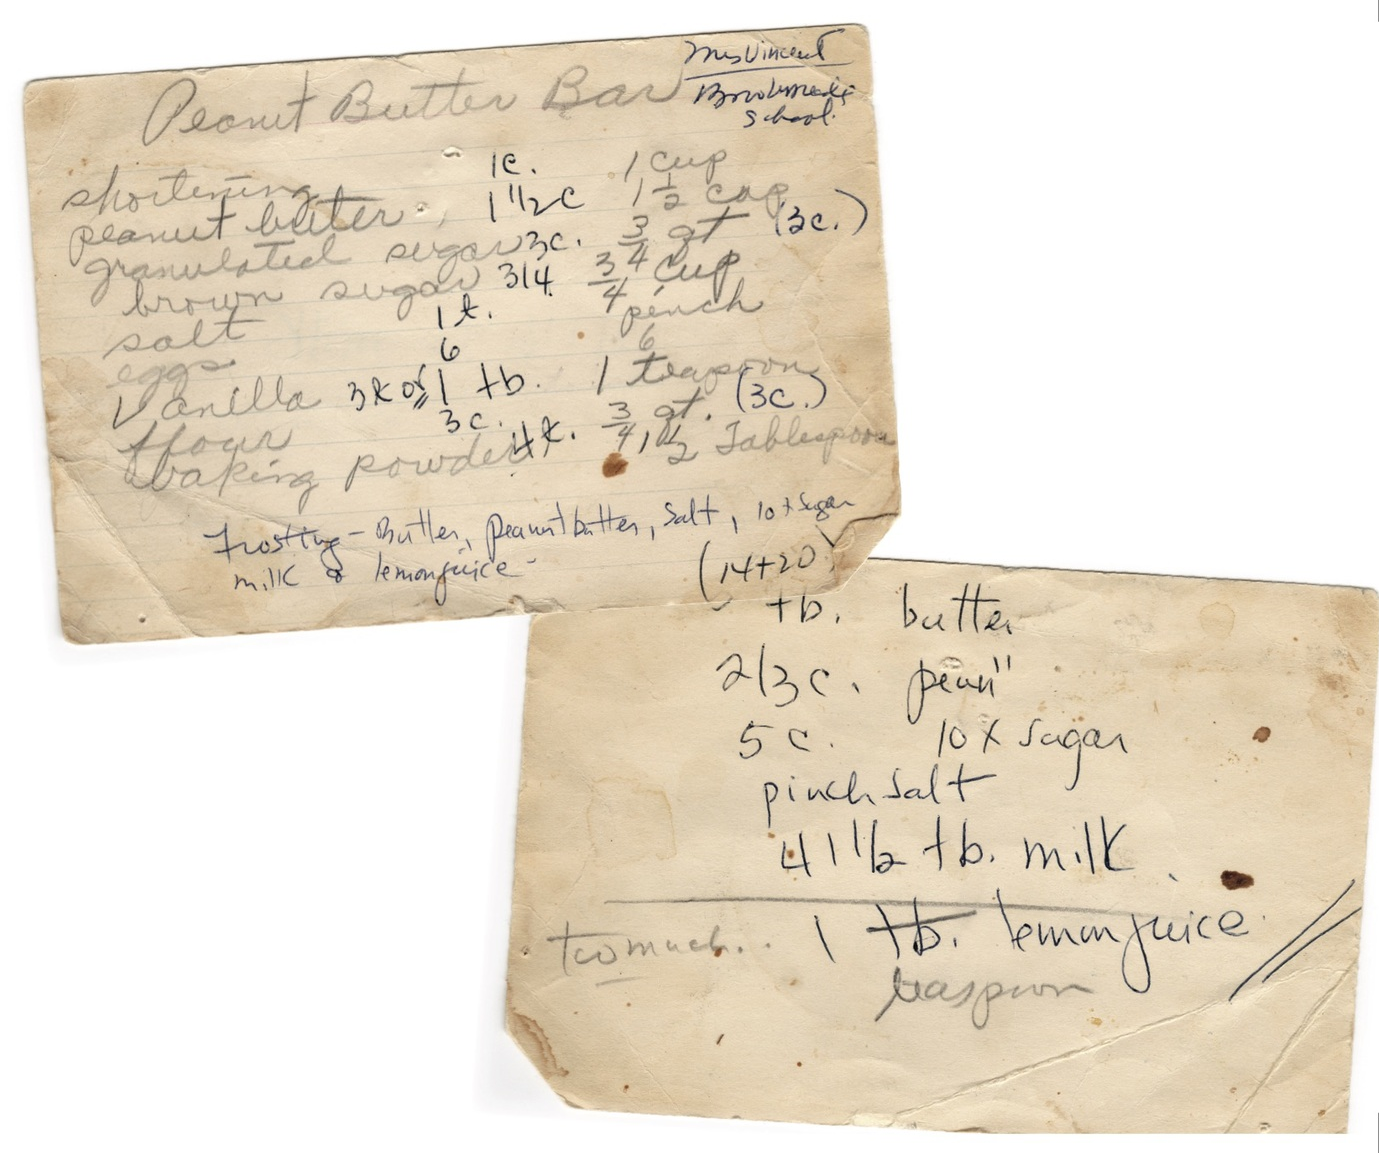 Mrs Vincent
Peanut Butter Bar
School.
shortening 1c. 1 cup
peanut butter 1 1/2 c 1 1/2 cup
granulated sugar 3c. 3/4 qt (3c.)
brown sugar 3/4 3/4 cup
salt 1 t. pinch
eggs 6 6
Vanilla 3 t or 1 tb. 1 teaspoon
flour 3c. 3/4 qt. (3c.)
baking powder 4t. 1 1/2 Tablespoon
Frosting - Butter, peanut butter, salt, 10 x sugar
milk & lemon juice -
(14+20)
tb. butter
2/3 c. pean"
5 c. 10 X sugar
pinch salt
4 1 1/2 tb. milk.
too much.. 1 tb. lemon juice
teaspoon